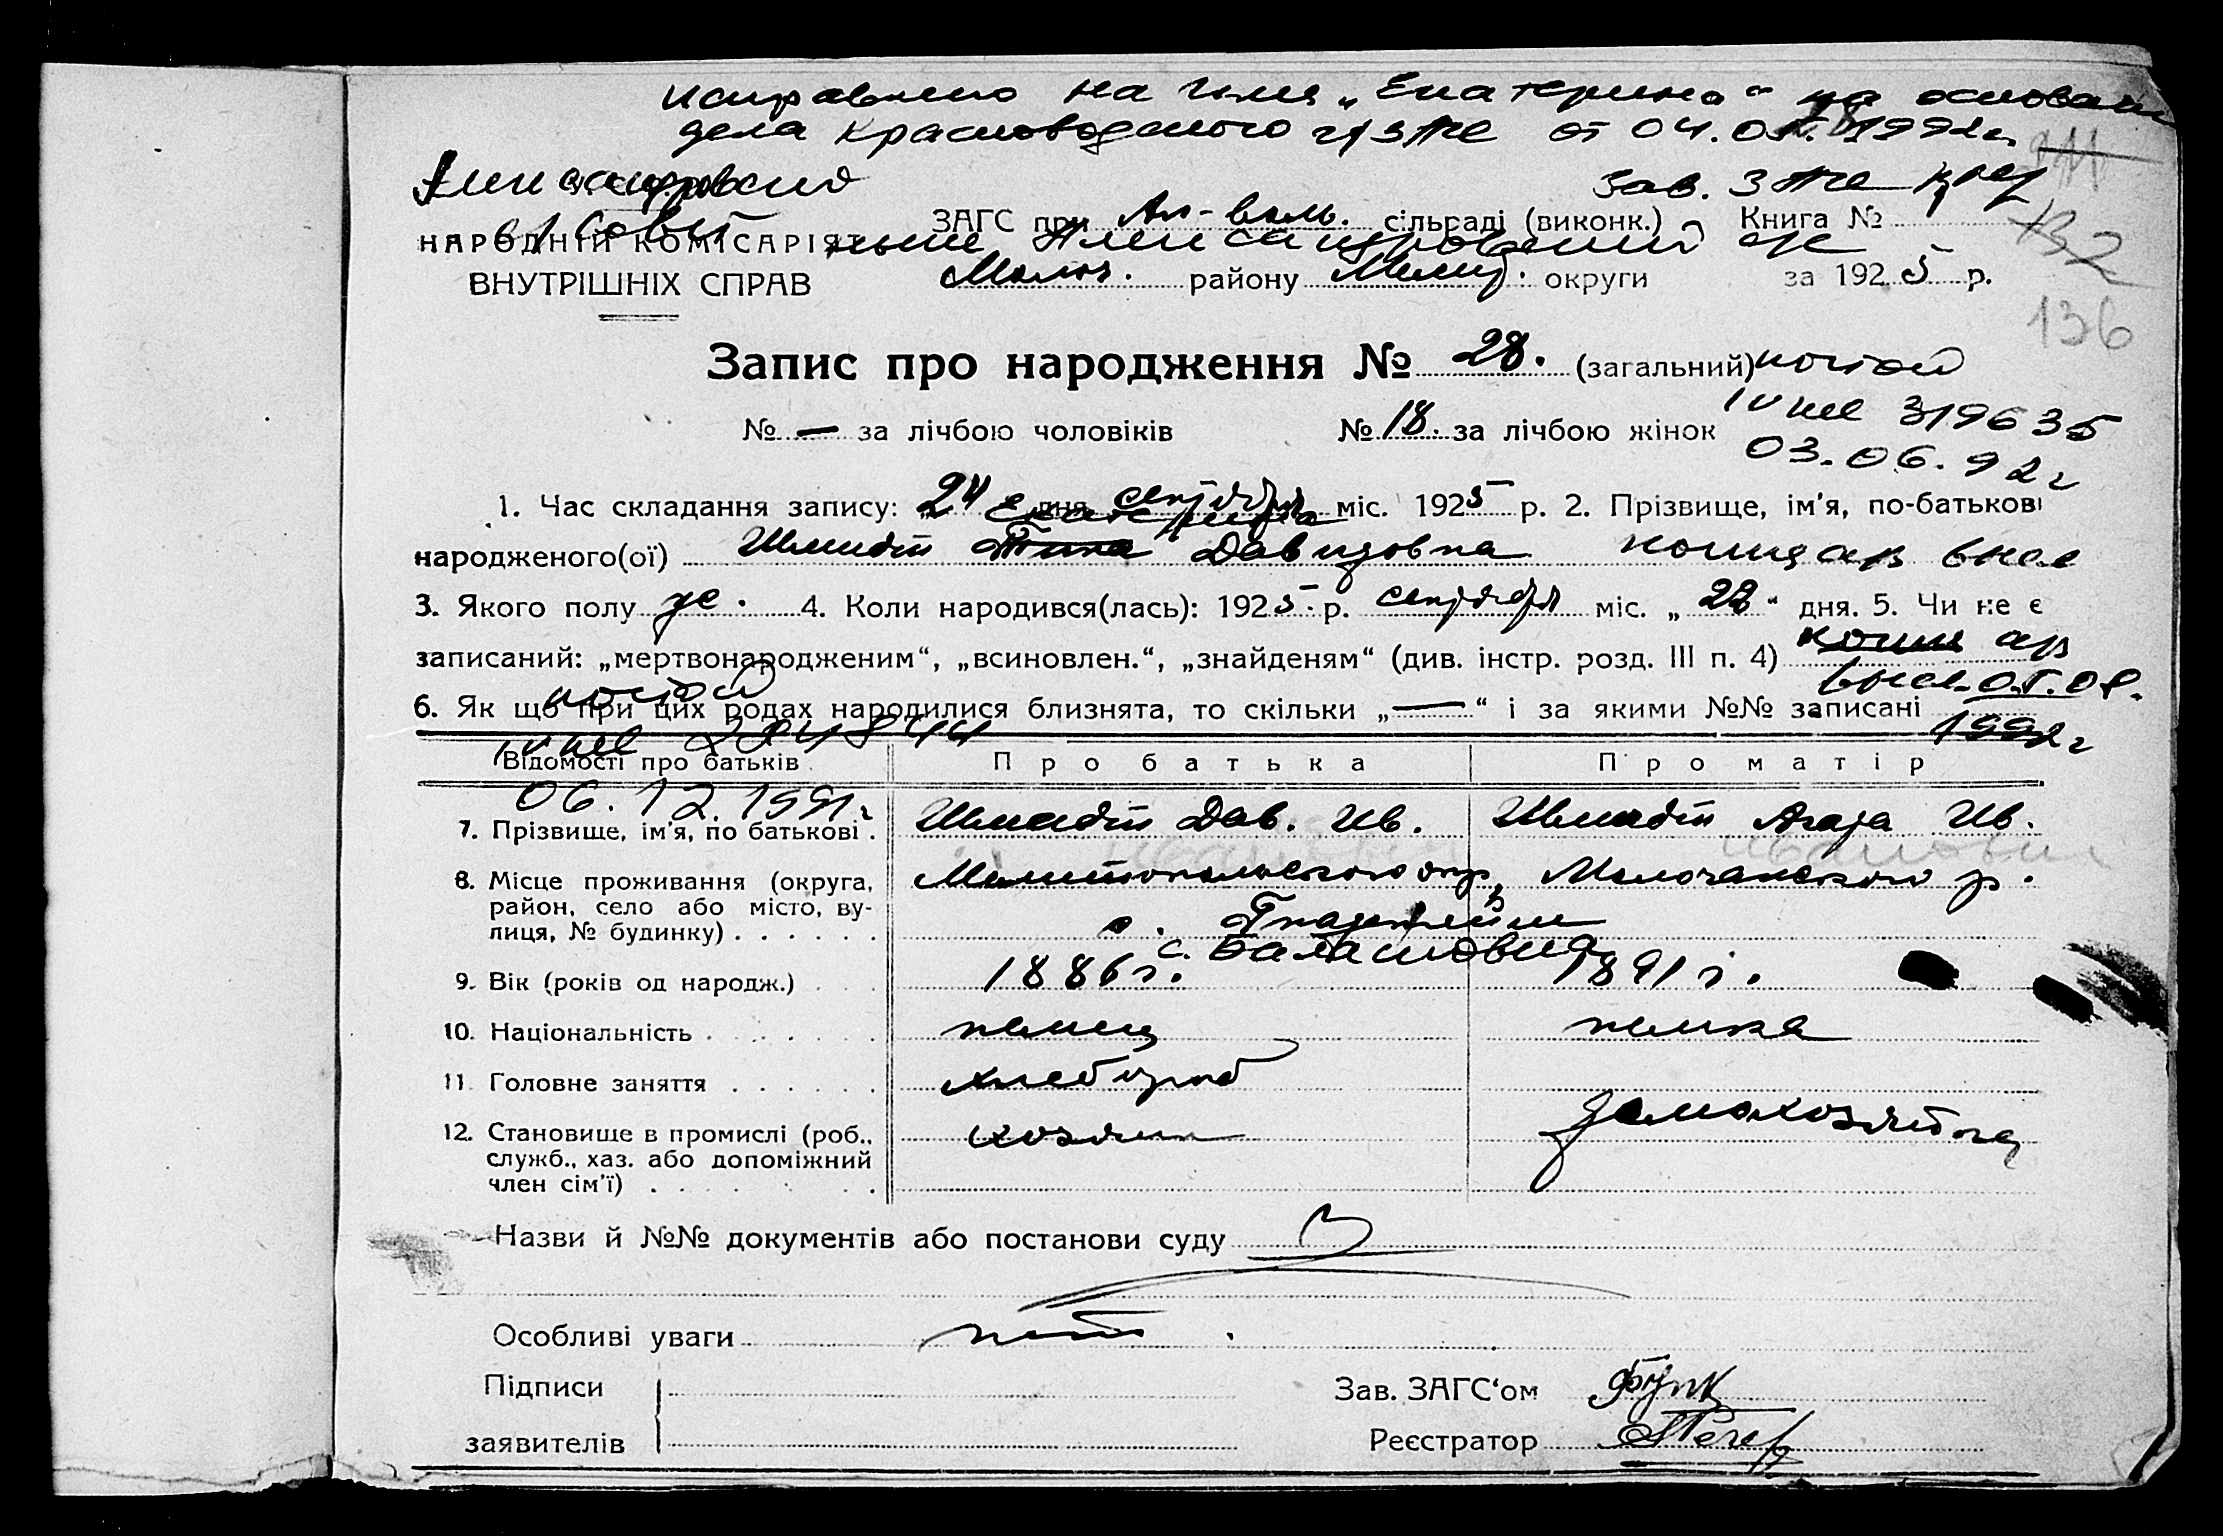 исправлено на имя „Екатерина“ на основани
дела Красноводского г/загс от 04.08.1992г.
Зав. Загс
Александровский
с/Совет
ЗАГС при Ал-воль. сільраді (виконк.) Книга №
132
НАРОДНІЙ КОМІСАРІЯТ ныне Александровский
ВНУТРІШНІХ СПРАВ Молоч. району Мелит. округи за 1925 р.
136
Запис про народження № 28. (загальний) повтой
№ — за лічбою чоловіків № 18. за лічбою жінок
319635
03.06.92г
1. Час складання запису: „24 дня сентября міс. 1925 р. 2. Прізвище, ім'я, по-батькові
Екатерина
народженого(ої) Шмидт Тина Давидовна
3. Якого полу ж. 4. Коли народився(лась): 1925 р. сентября міс. „22“ дня. 5. Чи не є
записаний: „мертвонародженим“, „всиновлен.“, „знайденям“ (див. інстр. розд. III п. 4)
6. Як що при цих родах народилися близнята, то скільки „—“ і за якими №№ записані
1992г
Відомості про батьків Про батька Про матір
06.12.1991г
7. Прізвище, ім'я, по батькові . Шмидт Дав. Ив. Шмидт Агата Ив.
8. Місце проживання (округа, район, село або місто, вулиця, № будинку) . . . . . . Мелитопольского окр., Молочанского р.
с. Гнаденгейм
с. Балашовка
9. Вік (років од народж.) . . . 1886г. 1891г.
10. Національність . . . . . . . немец немка
11. Головне заняття . . . . . . хлебороб
12. Становище в промислі (роб., служб., хаз. або допоміжний член сім'ї) . . . . . . . хозяин домохозяйка
Назви й №№ документів або постанови суду
Особливі уваги нет
Підписи Зав. ЗАГС'ом
заявителів Реєстратор